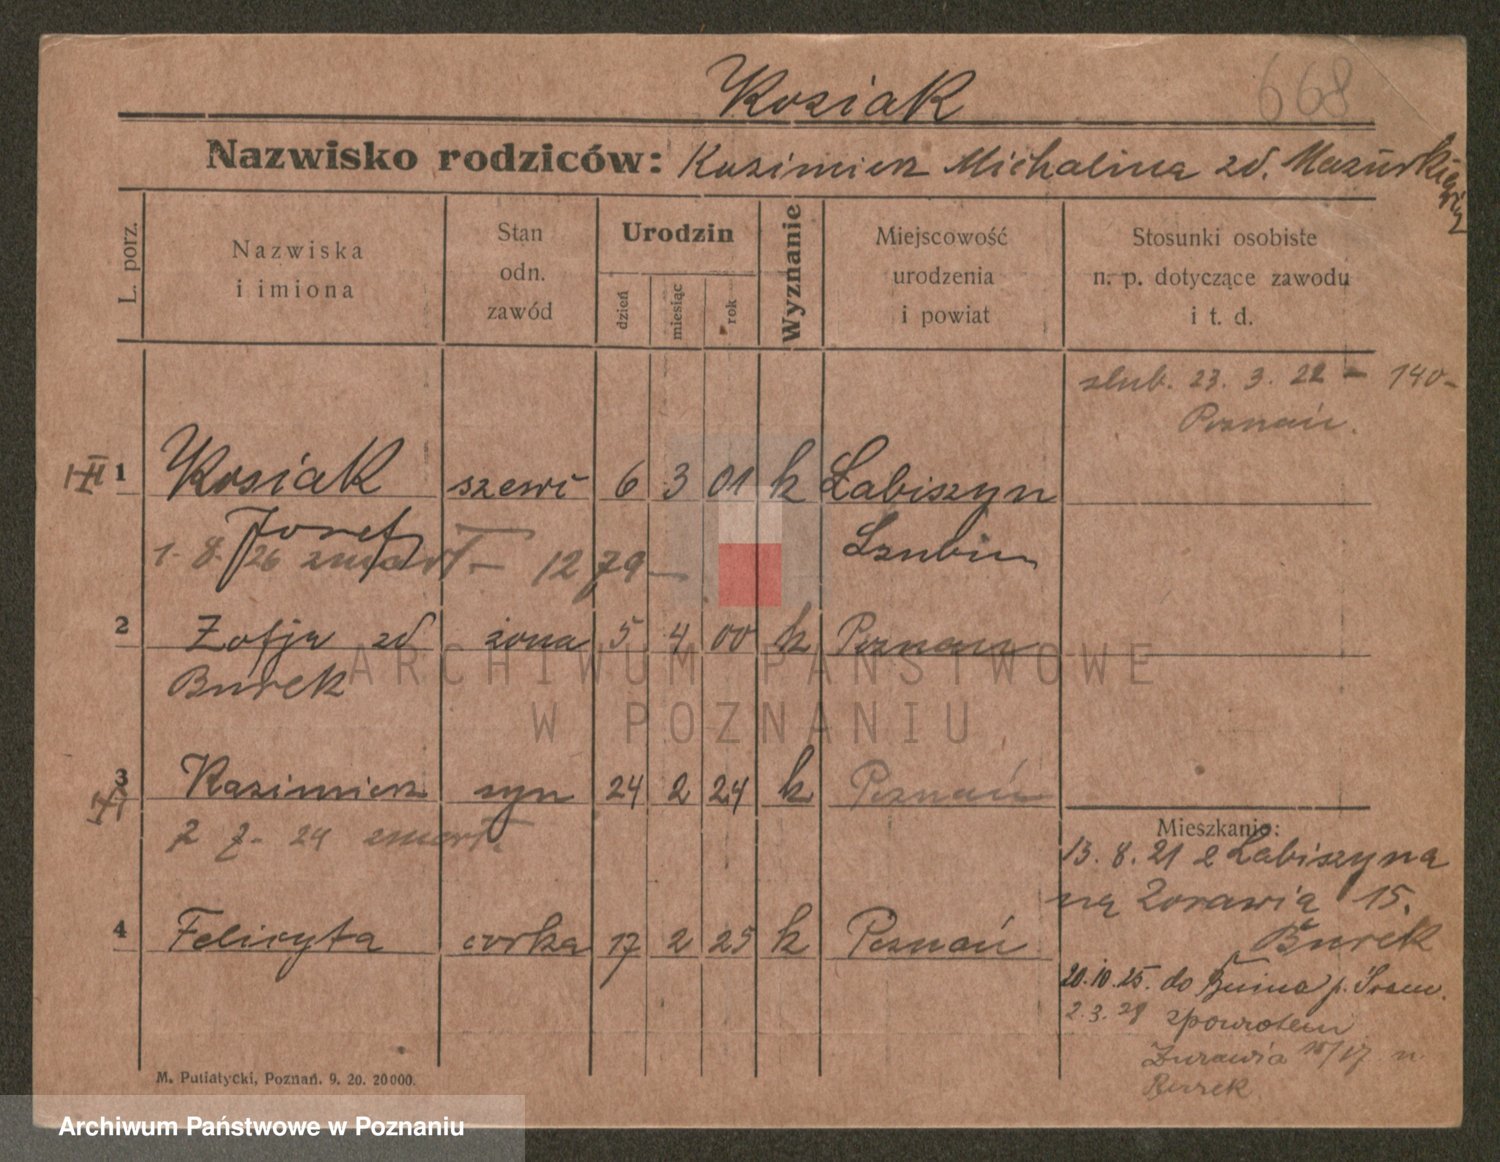 Kosiak
668
Nazwisko rodziców: Kazimierz Michalina zd. Mazurkiewicz
L. porz.
Nazwiska i imiona
Stan odn. zawód
Urodzin
dzień
miesiąc
rok
Wyznanie
Miejscowość urodzenia i powiat
Stosunki osobiste n. p. dotyczące zawodu i t. d.
ślub. 23. 3. 22 - 140-
Poznań.
1 Kosiak szewc 6 3 01 k Łabiszyn
Józef Szubin
1. 8. 26 zmarł - 1279 -
2 Zofja zd żona 5 4 00 k Poznań
Burek
ARCHIWUM PAŃSTWOWE
W POZNANIU
3 Kazimierz syn 24 2 24 k Poznań
2 7. 24 zmarł.
4 Felicyta córka 17 2 25 k Poznań
Mieszkanie:
13. 8. 21 z Łabiszyna
na Żórawią 15.
Burek
20.10.25. do Bnina p. Śrem.
2. 3. 29 zpowrotem
Żurawia 15/17 u.
Burek
M. Putiatycki, Poznań. 9. 20. 20000.
Archiwum Państwowe w Poznaniu